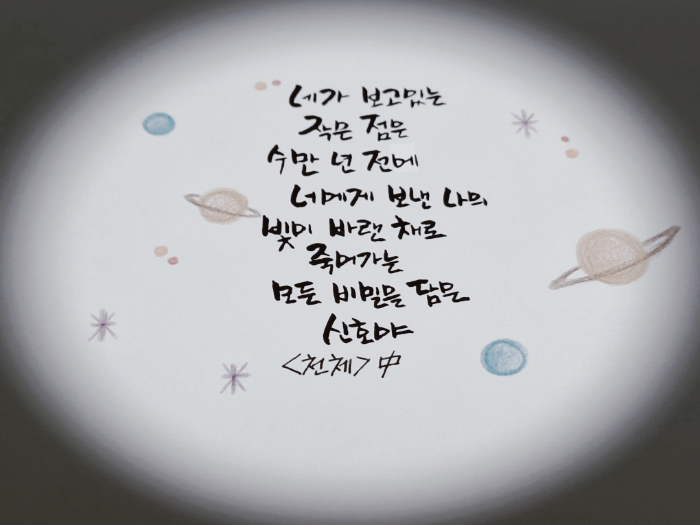 네가 보고있는
작은 점은
수만 년 전에
너에게 보낸 나의
빛이 바랜 채로
죽어가는
모든 비밀을 담은
신호야
<천체> 中